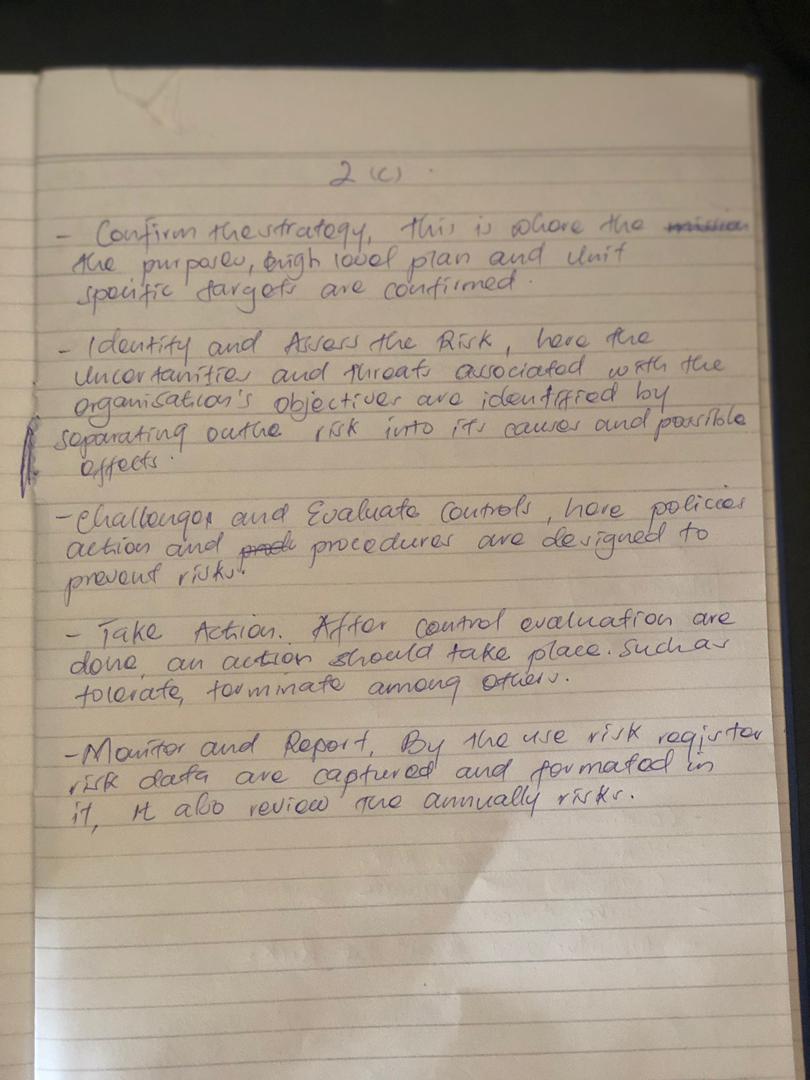 2 (c)
- Confirm the strategy, this is where the mission
the purposes, high level plan and Unit
specific targets are confirmed.
- Identity and Assess the Risk, here the
Uncertanities and threats associated with the
organisation's objectives are identified by
separating outhe risk into its causes and possible
effects.
- Challenges and Evaluate Controls, here policies
action and procedures are designed to
prevent risks.
- Take Action. After control evaluation are
done, an action should take place. Such as
tolerate, terminate among others.
- Monitor and Report, By the use risk register
risk data are captured and formated in
it, It also review the annually risks.